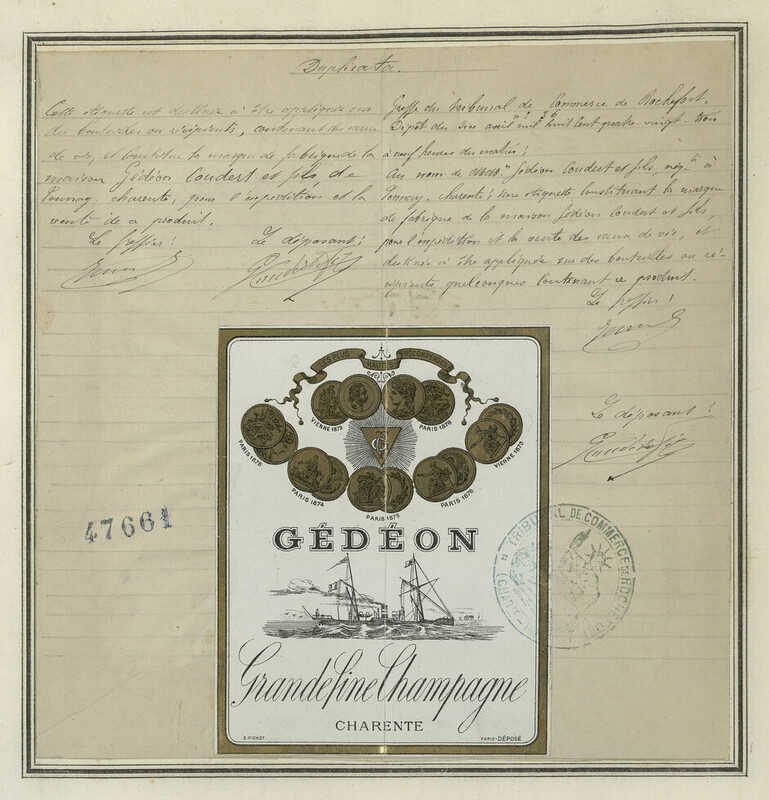 Duplicata.
Cette étiquette est destinée à être appliquée sur
des bouteilles ou récipients, contenant des eaux
de vie, et constitue la marque de fabrique de la
maison Gédéon Coudert et fils de
Tonnay, charente, pour l'expédition et la
vente de ce produit.
Le greffier :
Le déposant :
Greffe du tribunal de Commerce de Rochefort.
Dépôt du avril mil huit cent quatre-vingt-trois
à neuf heures du matin :
Au nom de Gédéon Coudert et fils, négts à
Tonnay, charente ; Une étiquette constituant la marque
de fabrique de la maison Gédéon Coudert et fils,
pour l'expédition et la vente des eaux de vie, et
destinée à être appliquée sur des bouteilles ou ré-
cipients quelconques contenant ce produit.
Le greffier :
Le déposant :
47661
LES PLUS HAUTES RÉCOMPENSES
VIENNE 1873
PARIS 1878
G
PARIS 1878
VIENNE 1873
PARIS 1874
PARIS 1876
PARIS 1875
GÉDÉON
Grande Fine Champagne
CHARENTE
E. PICHOT
PARIS-DÉPOSÉ
TRIBUNAL DE COMMERCE DE ROCHEFORT